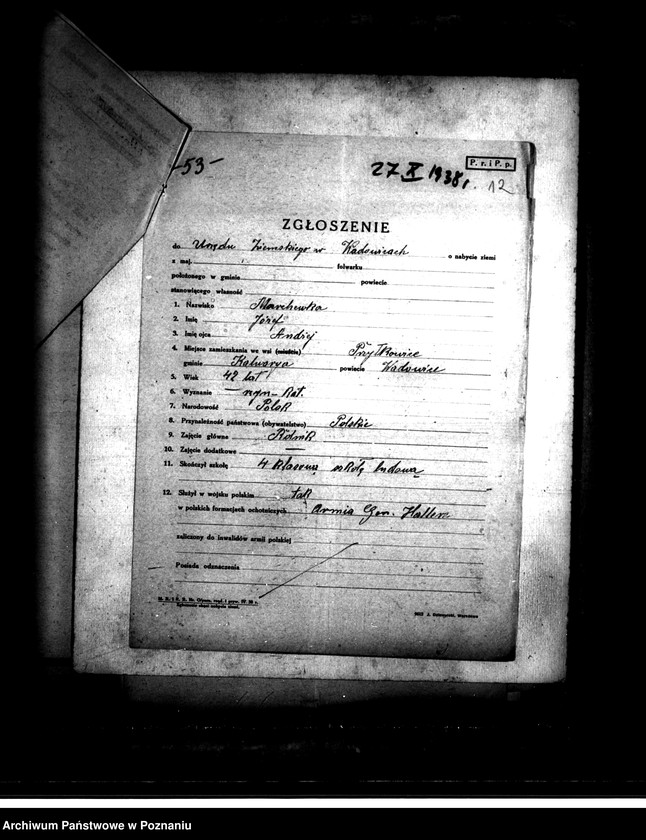 -53-
27 X 1938 r.
P. r. i P. p.
12
ZGŁOSZENIE
do Urzędu Ziemskiego w Wadowicach o nabycie ziemi
z maj. folwarku
położonego w gminie powiecie
stanowiącego własność
1. Nazwisko Marchewka
2. Imię Józef
3. Imię ojca Andrzej
4. Miejsce zamieszkania we wsi (mieście) Przytkowice
gminie Kalwarya powiecie Wadowice
5. Wiek 42 lat
6. Wyznanie rzym-kat.
7. Narodowość Polak
8. Przynależność państwowa (obywatelstwo) Polskie
9. Zajęcie główne Rolnik
10. Zajęcie dodatkowe —
11. Skończył szkołę 4 klasową szkołę ludową
12. Służył w wojsku polskim tak
w polskich formacjach ochotniczych Armia Gen. Hallera
zaliczony do inwalidów armii polskiej
Posiada odznaczenia
Zgłoszenie chęci nabycia ziemi.
Archiwum Państwowe w Poznaniu